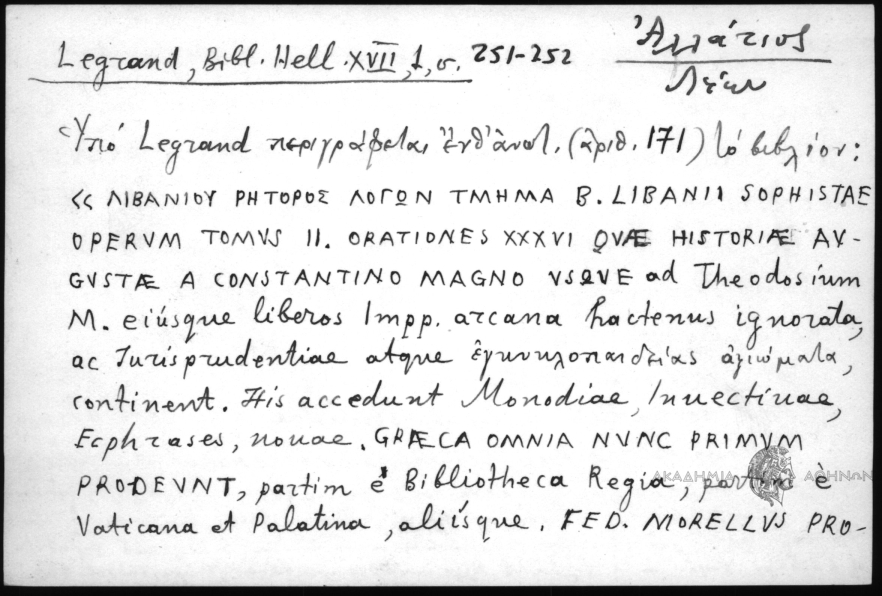 Legrand, Bibl. Hell. XVII, 1, σ. 251-252
Ἀλλάτιος
Λέων
Ὑπό Legrand περιγράφεται ἐνθ' ἀνωτ. (ἀριθ. 171) τό βιβλίον:
<< ΛΙΒΑΝΙΟΥ ΡΗΤΟΡΟΣ ΛΟΓΩΝ ΤΜΗΜΑ Β. LIBANII SOPHISTAE
OPERVM TOMVS II. ORATIONES XXXVI QVÆ HISTORIÆ AV-
GVSTÆ A CONSTANTINO MAGNO VSQVE ad Theodosium
M. eiúsque liberos Impp. arcana hactenus ignorata,
ac Iurisprudentiae atque ἐγκυκλοπαιδείας ἀξιώματα,
continent. His accedunt Monodiae, Inuectiuae,
Ecphrases, nouae. GRÆCA OMNIA NVNC PRIMVM
PRODEVNT, partim è Bibliotheca Regia, partim è
Vaticana et Palatina, aliísque. FED. MORELLVS PRO-
ΑΚΑΔΗΜΙΑ ΑΘΗΝΩΝ